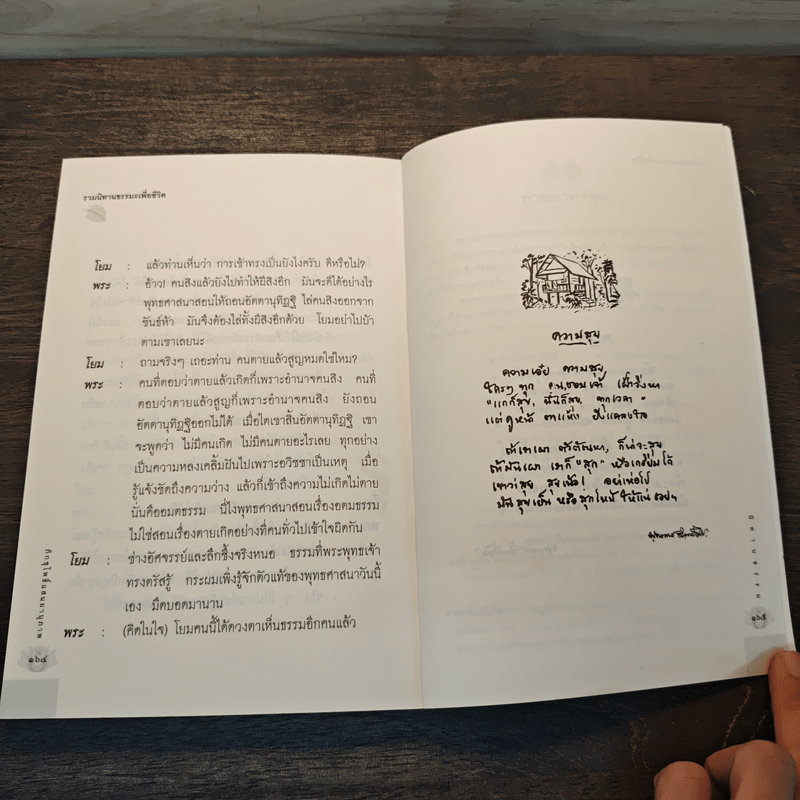 รวมนิทานธรรมะเพื่อชีวิต
โยม : แล้วท่านเห็นว่า การเข้าทรงเป็นยังไงครับ ดีหรือไม่?
พระ : อ้าว! คนสิงแล้วยังไปทำให้ผีสิงอีก มันจะดีได้อย่างไร
พุทธศาสนาสอนให้ถอนอัตตานุทิฏฐิ ไล่คนสิงออกจาก
ขันธ์ห้า มันจึงต้องไล่ทั้งผีสิงอีกด้วย โยมอย่าไปบ้า
ตามเขาเลยนะ
โยม : ถามจริงๆ เถอะท่าน คนตายแล้วสูญหมดใช่ไหม?
พระ : คนที่ตอบว่าตายแล้วเกิดก็เพราะอำนาจคนสิง คนที่
ตอบว่าตายแล้วสูญก็เพราะอำนาจคนสิง ยังถอน
อัตตานุทิฏฐิออกไม่ได้ เมื่อใดเขาสิ้นอัตตานุทิฏฐิ เขา
จะพูดว่า ไม่มีคนเกิด ไม่มีคนตายอะไรเลย ทุกอย่าง
เป็นความหลงเคลิ้มฝันไปเพราะอวิชชาเป็นเหตุ เมื่อ
รู้แจ้งชัดถึงความว่าง แล้วก็เข้าถึงความไม่เกิดไม่ตาย
นั่นคืออมตธรรม นี่ไงพุทธศาสนาสอนเรื่องอมตธรรม
ไม่ใช่สอนเรื่องตายเกิดอย่างที่คนทั่วไปเข้าใจผิดกัน
โยม : ช่างอัศจรรย์และลึกซึ้งจริงหนอ ธรรมที่พระพุทธเจ้า
ทรงตรัสรู้ กระผมเพิ่งรู้จักตัวแท้ของพุทธศาสนาวันนี้
เอง มืดบอดมานาน
พระ : (คิดในใจ) โยมคนนี้ได้ดวงตาเห็นธรรมอีกคนแล้ว
ภิกขุโพธิ์แสนยานุภาพ
๑๖๔
ความสุข
ความเอ๋ย ความสุข
ใครๆ ทุก คน, ชอบเจ้า เฝ้าวิ่งหา
"แกก็สุข, ฉันก็สุข, ทุกเวลา"
แต่ดูหน้า ตาแห้ง ยังแคลงใจ
ถ้าเราเผา ตัวตัณหา, ก็น่าจะสุข
ถ้ามันเผา เราก็ "สุก" หรือเกรียมได้
เขาว่าสุข สุขเน้อ! อย่าเห่อไป
มันสุขเย็น หรือสุกไหม้ ให้แน่เอยฯ
นิทานธรรม
๑๖๕